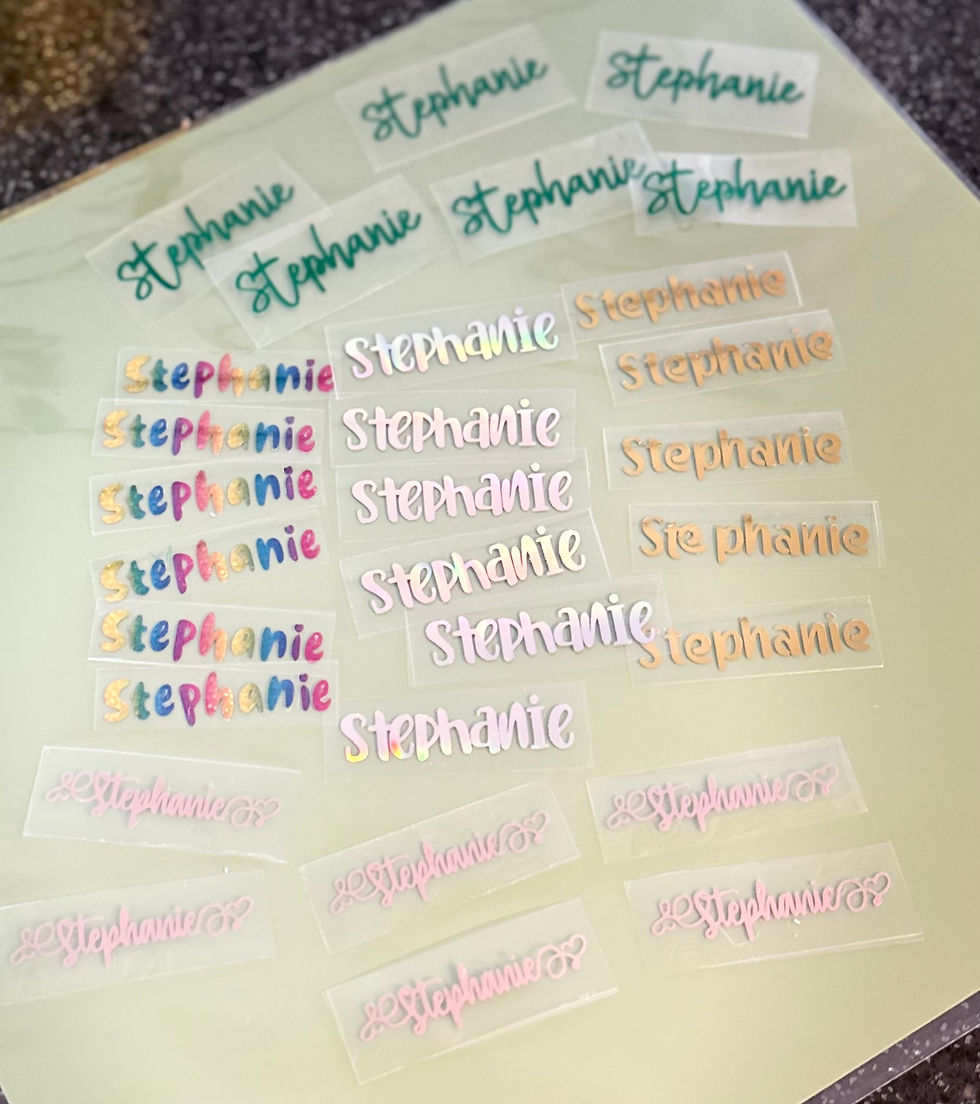 Stephanie
Stephanie
Stephanie
Stephanie
Stephanie
Stephanie
Stephanie
Stephanie
Stephanie
Stephanie
Stephanie
Stephanie
Stephanie
Stephanie
Stephanie
Stephanie
Stephanie
Stephanie
Stephanie
Stephanie
Stephanie
Ste phanie
Stephanie
Stephanie
Stephanie
Stephanie
Stephanie
Stephanie
Stephanie